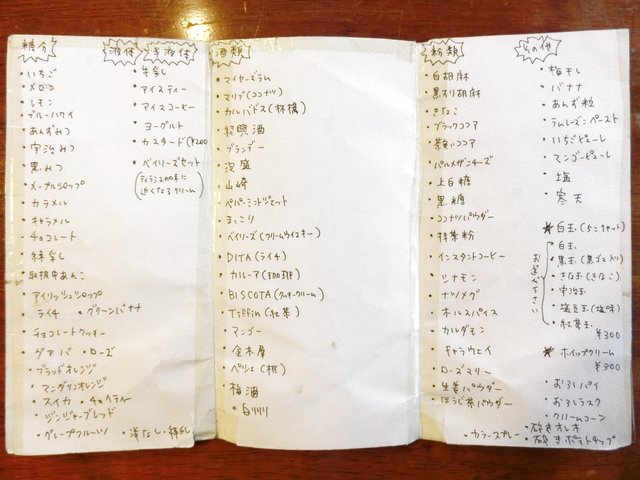 糖分
・いちご
・メロン
・レモン
・ブルーハワイ
・あんずみつ
・宇治みつ
・黒みつ
・メープルシロップ
・カラメル
・キャラメル
・チョコレート
・練乳
・取桟中あんこ
・アイリッシュシロップ
・ライチ ・グリーンバナナ
・チョコレートクッキー
・グアバ ・ローズ
・ブラッドオレンジ
・マンダリンオレンジ
・スイカ
・ジンジャーブレッド
・グレープフルーツ
液体 半液体
・牛乳
・アイスティー
・アイスコーヒー
・ヨーグルト
・カスタード(¥200
・ベイリーズセット
(ティラミスの味に
近くなるクリーム)
酒類
・マイヤーズラム
・マリブ(ココナツ)
・カルバドス(林檎)
・紹興酒
・ブランデー
・泡盛
・山崎
・ペパーミントジェット
・まっこり
・ベイリーズ(クリームウイスキー)
・DITA(ライチ)
・カルーア(珈琲)
・BISCOTA(クッキークリーム)
・Tiffin(紅茶)
・マンゴー
・金木犀
・ペシェ(桃)
・梅酒
粉類
・白胡麻
・黒すり胡麻
・きなこ
・ブラックココア
・茶色いココア
・パルメザンチーズ
・上白糖
・黒糖
・ココナツパウダー
・抹茶粉
・インスタントコーヒー
・シナモン
・ナツメグ
・オールスパイス
・カルダモン
・キャラウェイ
・ローズマリー
・生姜パウダー
・ほうじ茶パウダー
その他
・梅干し
・バナナ
・あんず粒
・ラムレーズンペースト
・いちごピューレ
・マンゴーピューレ
・塩
・寒天
★白玉(5こでセット)
お選び下さい
・白玉
・黒玉(黒ゴマ入り)
・きな玉(きなこ)
・宇治玉
・塩豆玉(塩味)
・紅芋玉
¥300
★ホイップクリーム
¥300
・おろしパイ
・おろしラスク
・クリームコーン
・カラースプレー ・砕きオレオ
・砕きポテトチップ